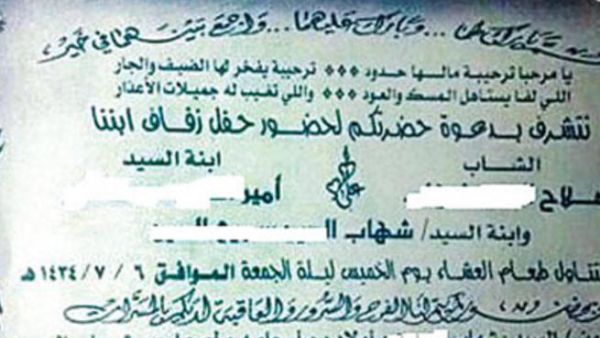 وبارك لهما ... وبارك عليهما ... واجمع بينهما في خير
يا مرحبا ترحيبة مالها حدود *** ترحيبة يفخر لها الضيف والجار
اللي لفا يستاهل المسك والعود *** واللي تغيب له جميلات الأعذار
نتشرف بدعوة حضرتكم لحضور حفل زفاف ابننا
الشاب ابنة السيد
أمير
وابنة السيد/ شهاب
طعام العشاء يوم الخميس ليلة الجمعة الموافق ٦ / ٧ / ١٤٣٤ هـ
لنا الفرح والسرور والعاقبة لديكم بالمسرات